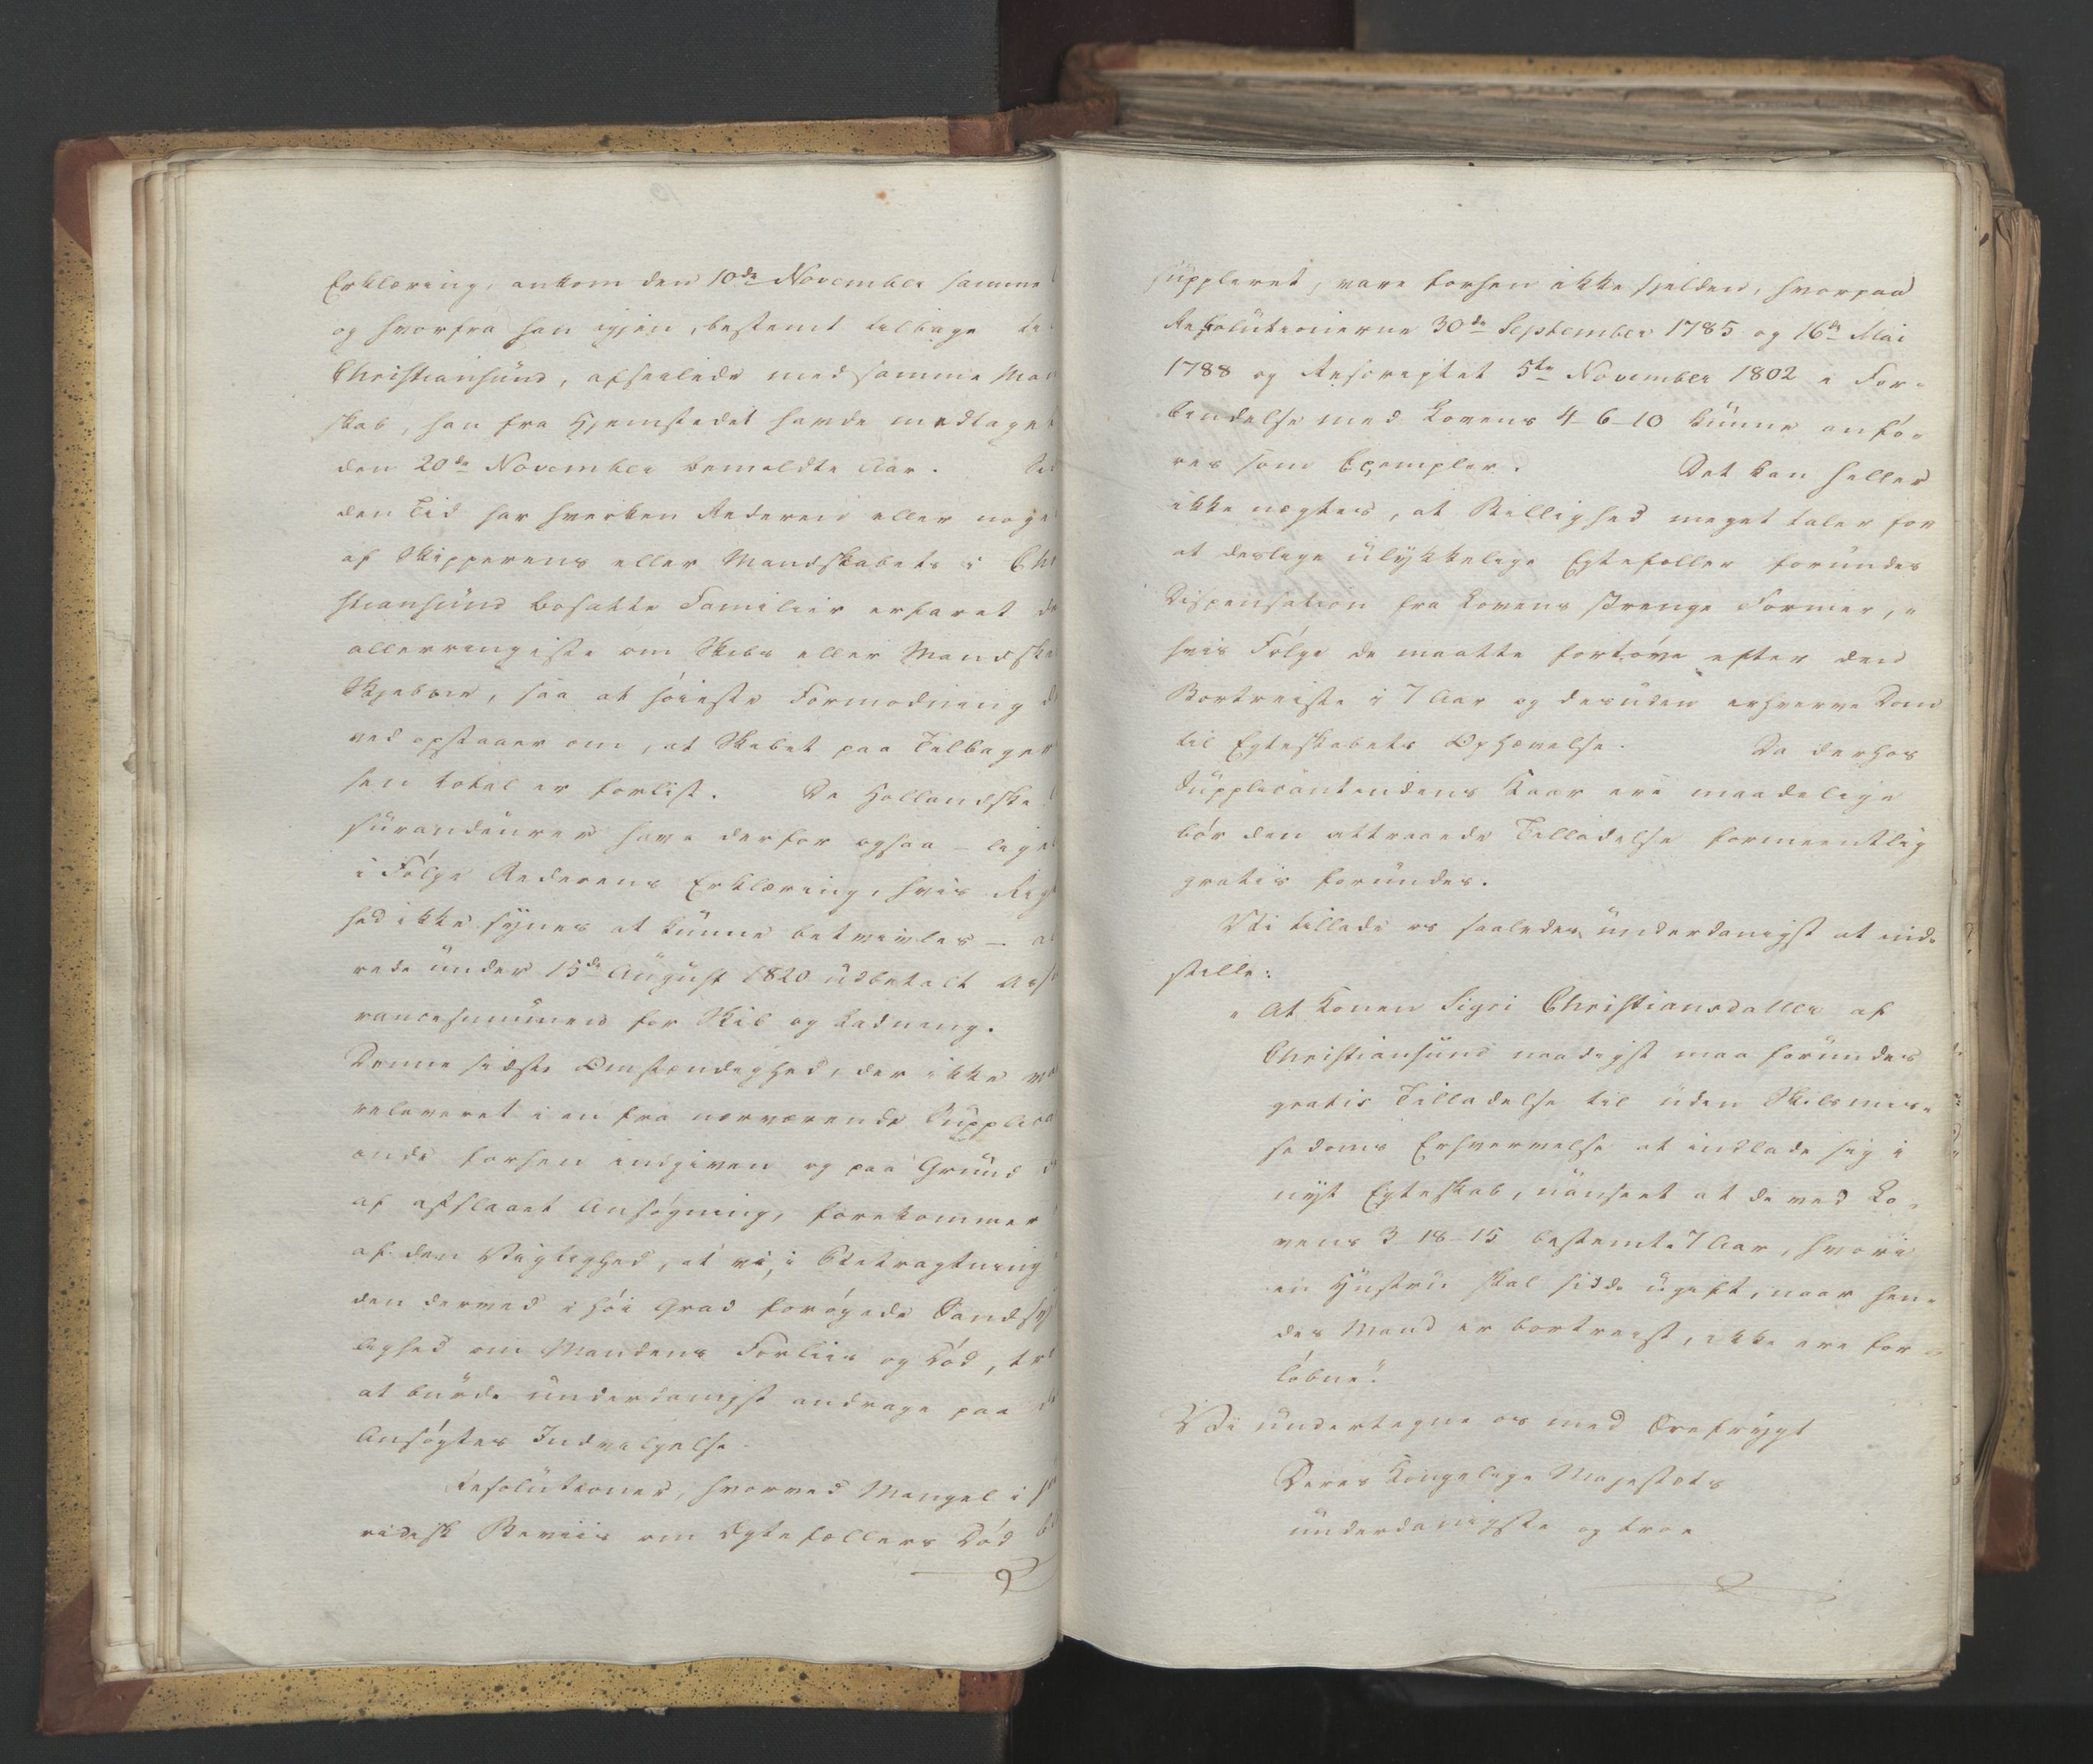 Erklæring, ankom den 10de November samme
og hvorfra han igjen, bestemt tilbage til
Christiansünd, afseilede med samme Man
skab, han fra Hjemstedet havde medtaget
den 20de November bemeldte Aar. Sid
den Tid har hverken Rederen eller noge
af Skipperens eller Mandskabets i Chri
stiansünd bosatte Familier erfaret de
allerringeste om Skibs eller Mandska
Skjebne, saa at høieste Formodning d
ved opstaaer om, at Skibet paa Tilbager
sen total er forlist. De Hollandske
sürandeurer have derfor ogsaa – lige
i Følge Rederens Erklæring, hvis Rig
hed ikke synes at künne betvivles – al
rede ünder 15de Aügüst 1820 üdbetalt Assu
rancesummen for Skib og Ladning.
Denne sidste Omstændighed, der ikke va
releveret i en fra nærværende Supplic
ande forhen indgiven og paa Grund
af afslaaet Ansøgning, forekommer
af den Vigtighed, at vi, i Betragtning
den derved i høi Grad forøgede Sandsy
lighed om Mandens Forliis og Død, tro
at bürde ünderdanigst andrage paa d
Ansøgtes Indvilgelse.
Resolütioner, hvorved Mangel i ju
ridisk Beviis om Ægtefællers Død b
süppleret, vare forhen ikke sjelden, hvorpaa
Resolütionerne 30te September 1785 og 16de Mai
1788 og Rescriptet 5te November 1802 i For-
bindelse med Lovens 4-6-10 künne anfø-
res som Exempler. Det kan heller
ikke nægtes, at Billighed meget taler for
at deslige ülykkelige Egtefæller foründes
Dispensation fra Lovens strenge Former, i
hvis Følge de maatte fortøve efter den
Bortreiste i 7 Aar og desüden erhverve Dom
til Egteskabets Ophævelse. Da derhos
Süpplicantindens Kaar ere maadelige
bør den attraaede Tilladelse formeentlig
gratis foründes.
Vi tillade os saaledes ünderdanigst at ind-
stille:
„At Konen Sigri Christiansdatter af
Christiansünd naadigst maa foründes
gratis Tilladelse til üden Skilsmis-
sedoms Erhvervelse at indlade sig i
nyt Egteskab, üanseet at de ved Lo-
vens 3-18-15 bestemte 7 Aar, hvori
en Hüstrü skal sidde ügift, naar hen-
des Mand er bortreist, ikke ere for-
løbne“.
Vi ündertegne os med Ærefrygt
Deres Kongelige Majestæts
ünderdanigste og troe